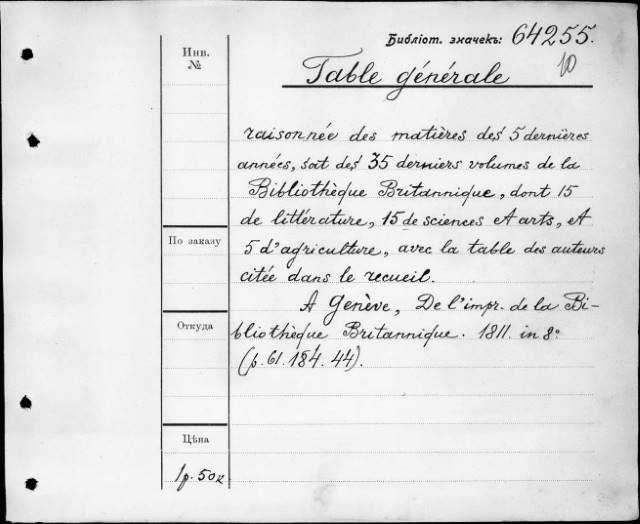 Библіот. значекъ: 64255.
10
Инв.
№
Table générale
raisonnée des matières des 5 dernières
années, soit des 35 derniers volumes de la
Bibliothèque Britannique, dont 15
de littérature, 15 de sciences et arts, et
По заказу
5 d'agriculture, avec la table des auteurs
citée dans le recueil.
A Genève, De l'impr. de la Bi-
Откуда
bliothèque Britannique. 1811. in 8º
(p. 61. 184. 44).
Цѣна
1 р. 50 к